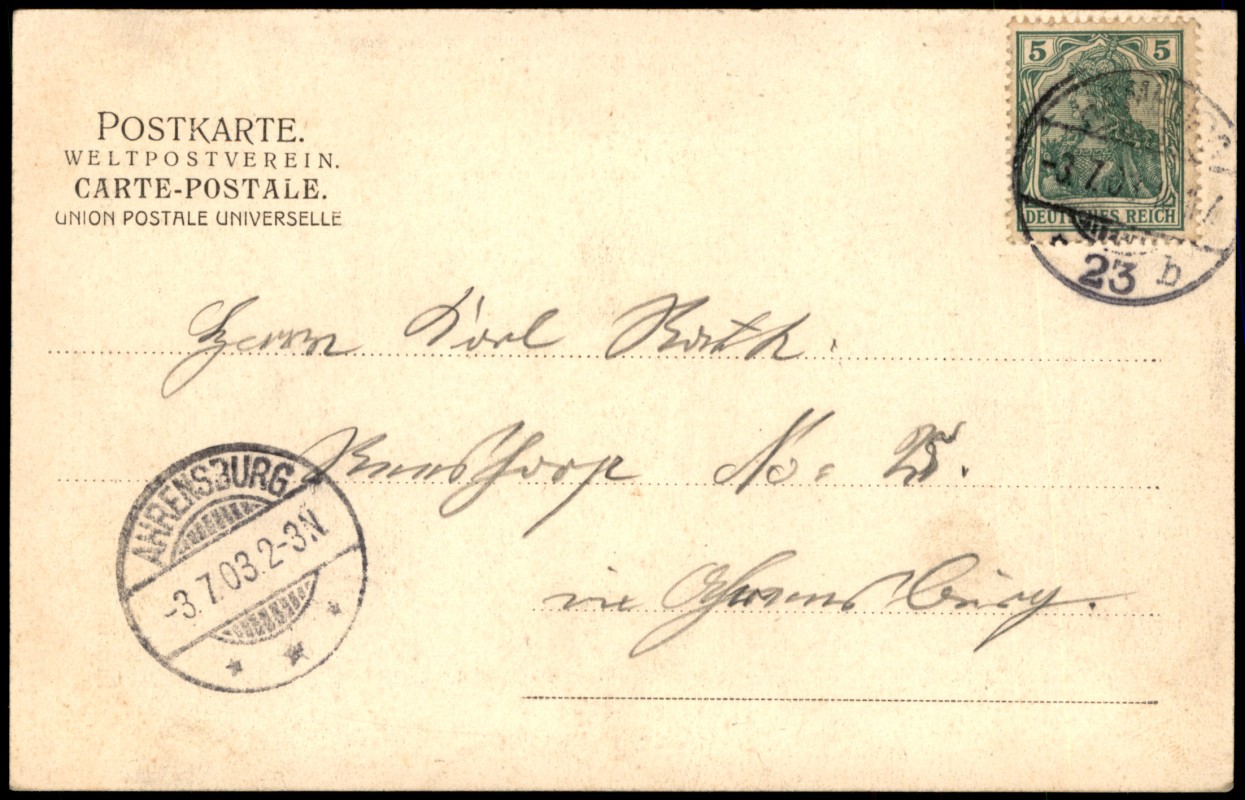 POSTKARTE.
WELTPOSTVEREIN.
CARTE-POSTALE.
UNION POSTALE UNIVERSELLE
5 5
DEUTSCHES REICH
-3.7.03
23 b
Herrn Karl Rath.
No
via Ahrensburg.
AHRENSBURG
-3.7.03.2-3N